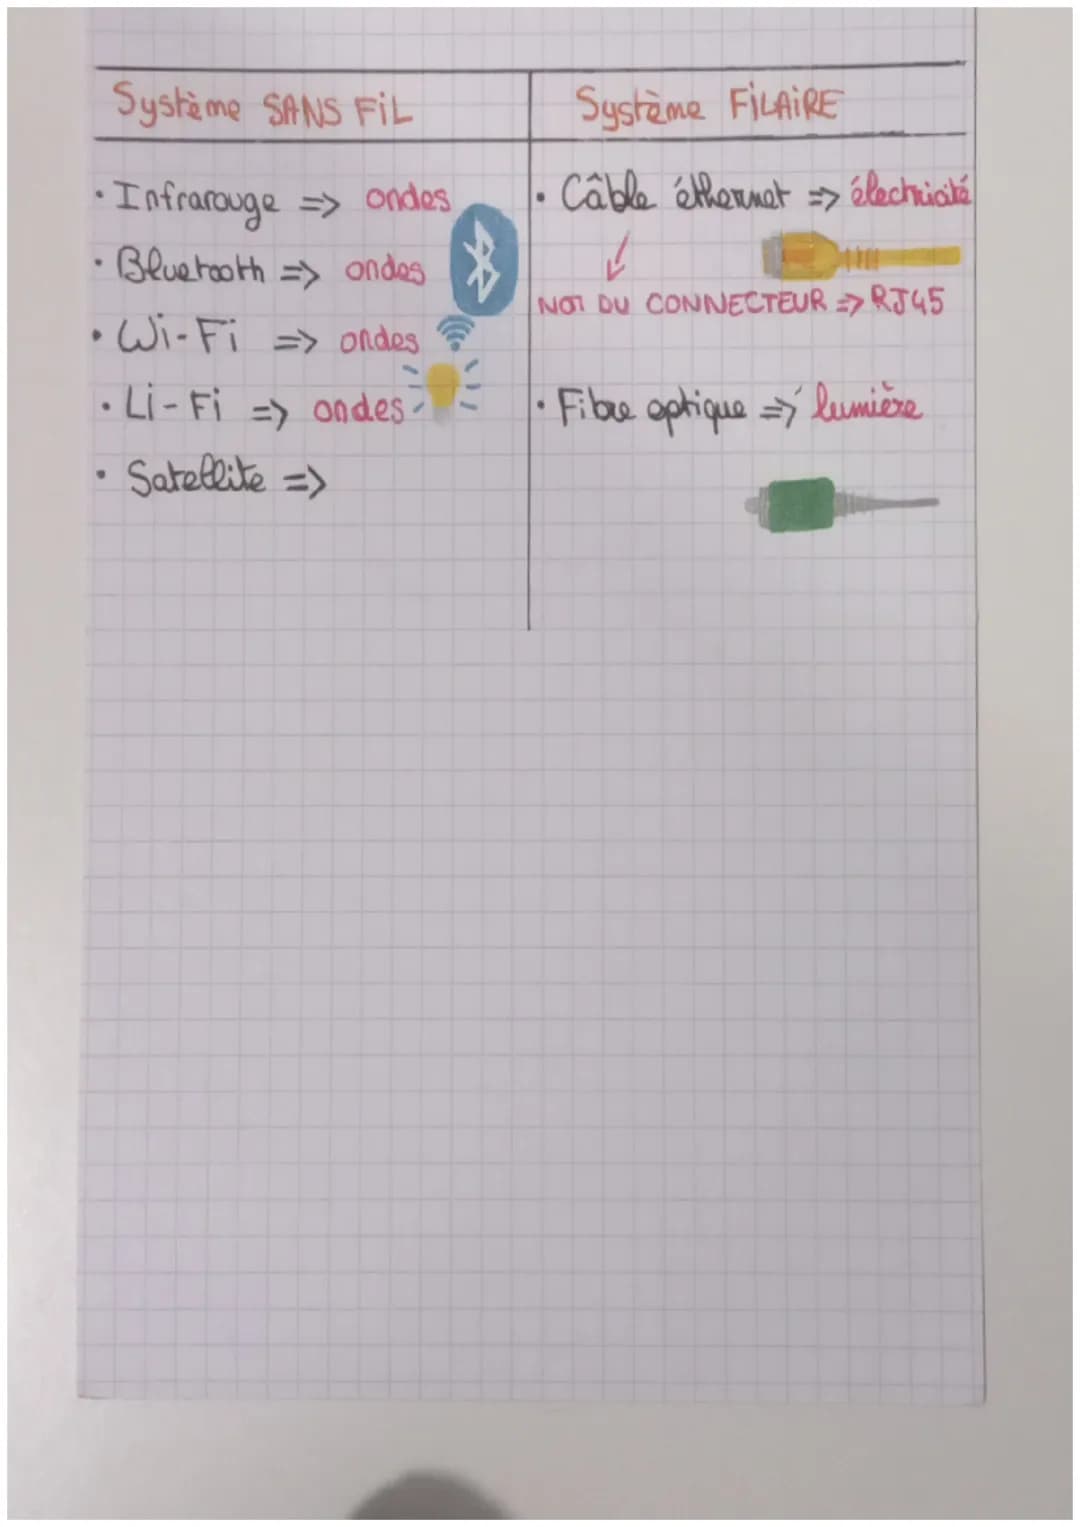 Système SANS FiL
Système FiLAiRE
• Infrarouge => ondes
• Bluetooth => ondes
• Wi-Fi => ondes
• Li-Fi => ondes
• Satellite =>
• Câble éthernet => électricité
NOT DU CONNECTEUR => RJ45
• Fibre optique => lumière